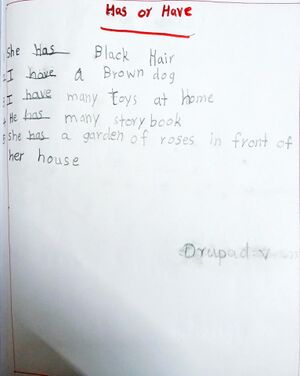 Has or Have
She Has Black Hair
I have a Brown dog
I have many toys at home
He has many storybook
She has a garden of roses in front of
her house
Drupad